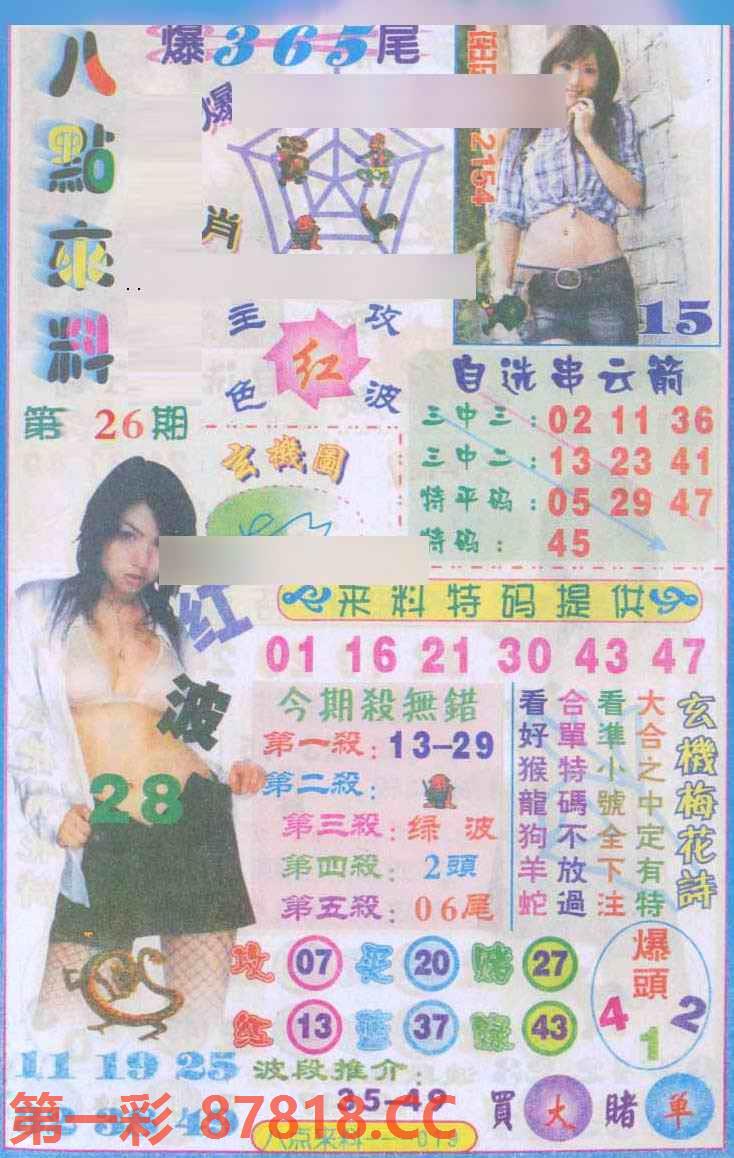 爆365尾
八點來料
爆
肖
2154
15
主攻
红
色波
第26期
玄機圖
自选串云箭
三中三：02 11 36
三中二：13 23 41
特平码：05 29 47
特码：45
来料特码提供
01 16 21 30 43 47
红波
28
今期殺無錯
第一殺：13-29
第二殺：
第三殺：绿波
第四殺：2頭
第五殺：06尾
玄機梅花詩
大合之中定有特
看準小號全下注
合單特碼不放過
看好猴龍狗羊蛇
攻 07 买 20 赌 27
红 13 蓝 37 綠 43
爆頭
4 1 2
11 19 25
波段推介：
35-49
買大賭单
第一彩 87818.CC
八点来料